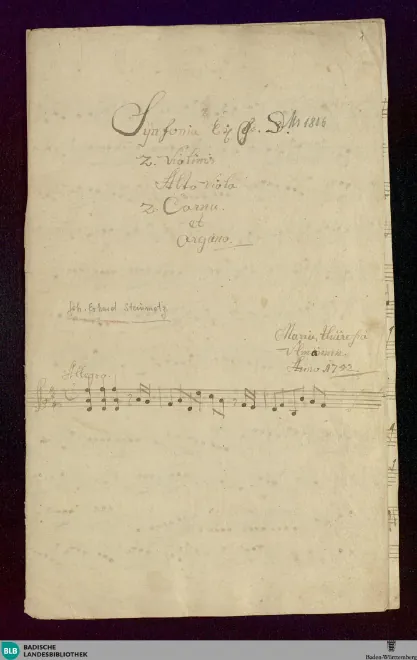 Synfonia Ex
D.Ms 1816
2. Violinis
Alto viola
2. Cornu.
et
Organo.
Joh. Erhard Steinmetz
Maria
Anno 1793
Allegro
BLB
BADISCHE
LANDESBIBLIOTHEK
Baden-Württemberg